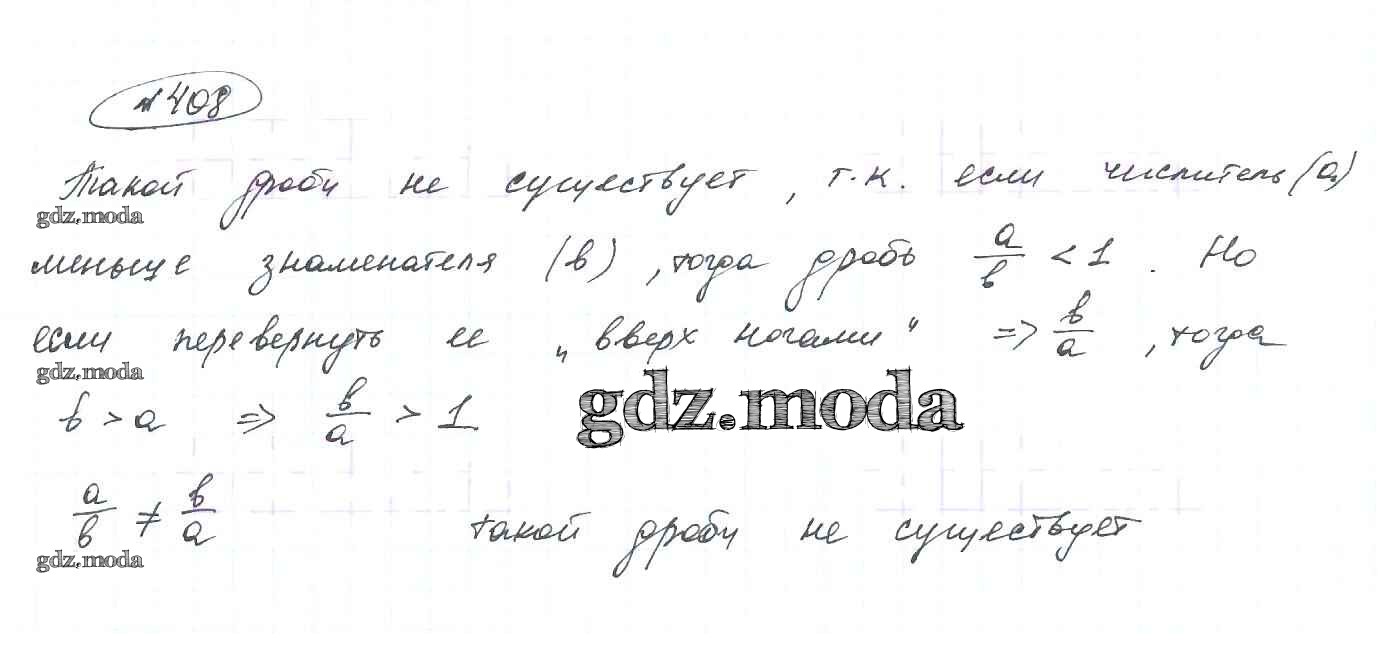 № 408
Такой дроби не существует, т.к. если числитель (а)
gdz.moda
меньше знаменателя (в), тогда дробь а/в < 1. Но
если перевернуть ее „вверх ногами“ => в/а, тогда
gdz.moda
gdz.moda
в > а => в/а > 1.
а/в ≠ в/а такой дроби не существует
gdz.moda